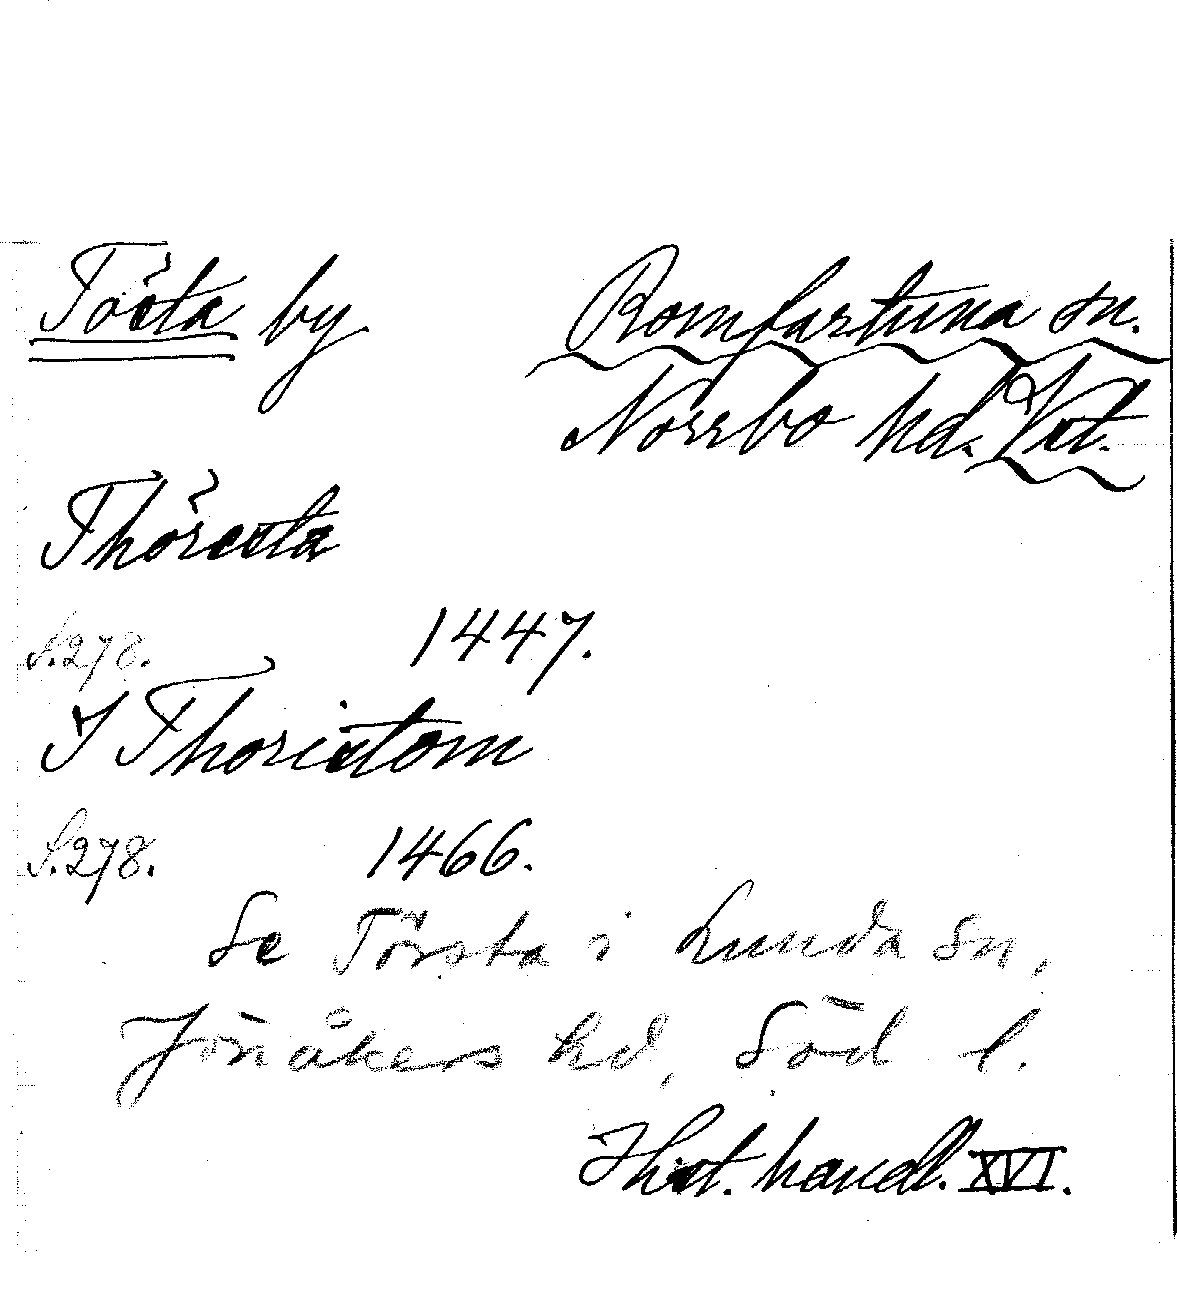 Tösta by
Romfartuna sn.
Norrbo hd. Vstl.
Thöresta
S.278. 1447.
J Thoristom
S.278. 1466.
Se Törsta i Lunda sn,
Jönåkers hd, Söd l.
Hist. handl. XVI.